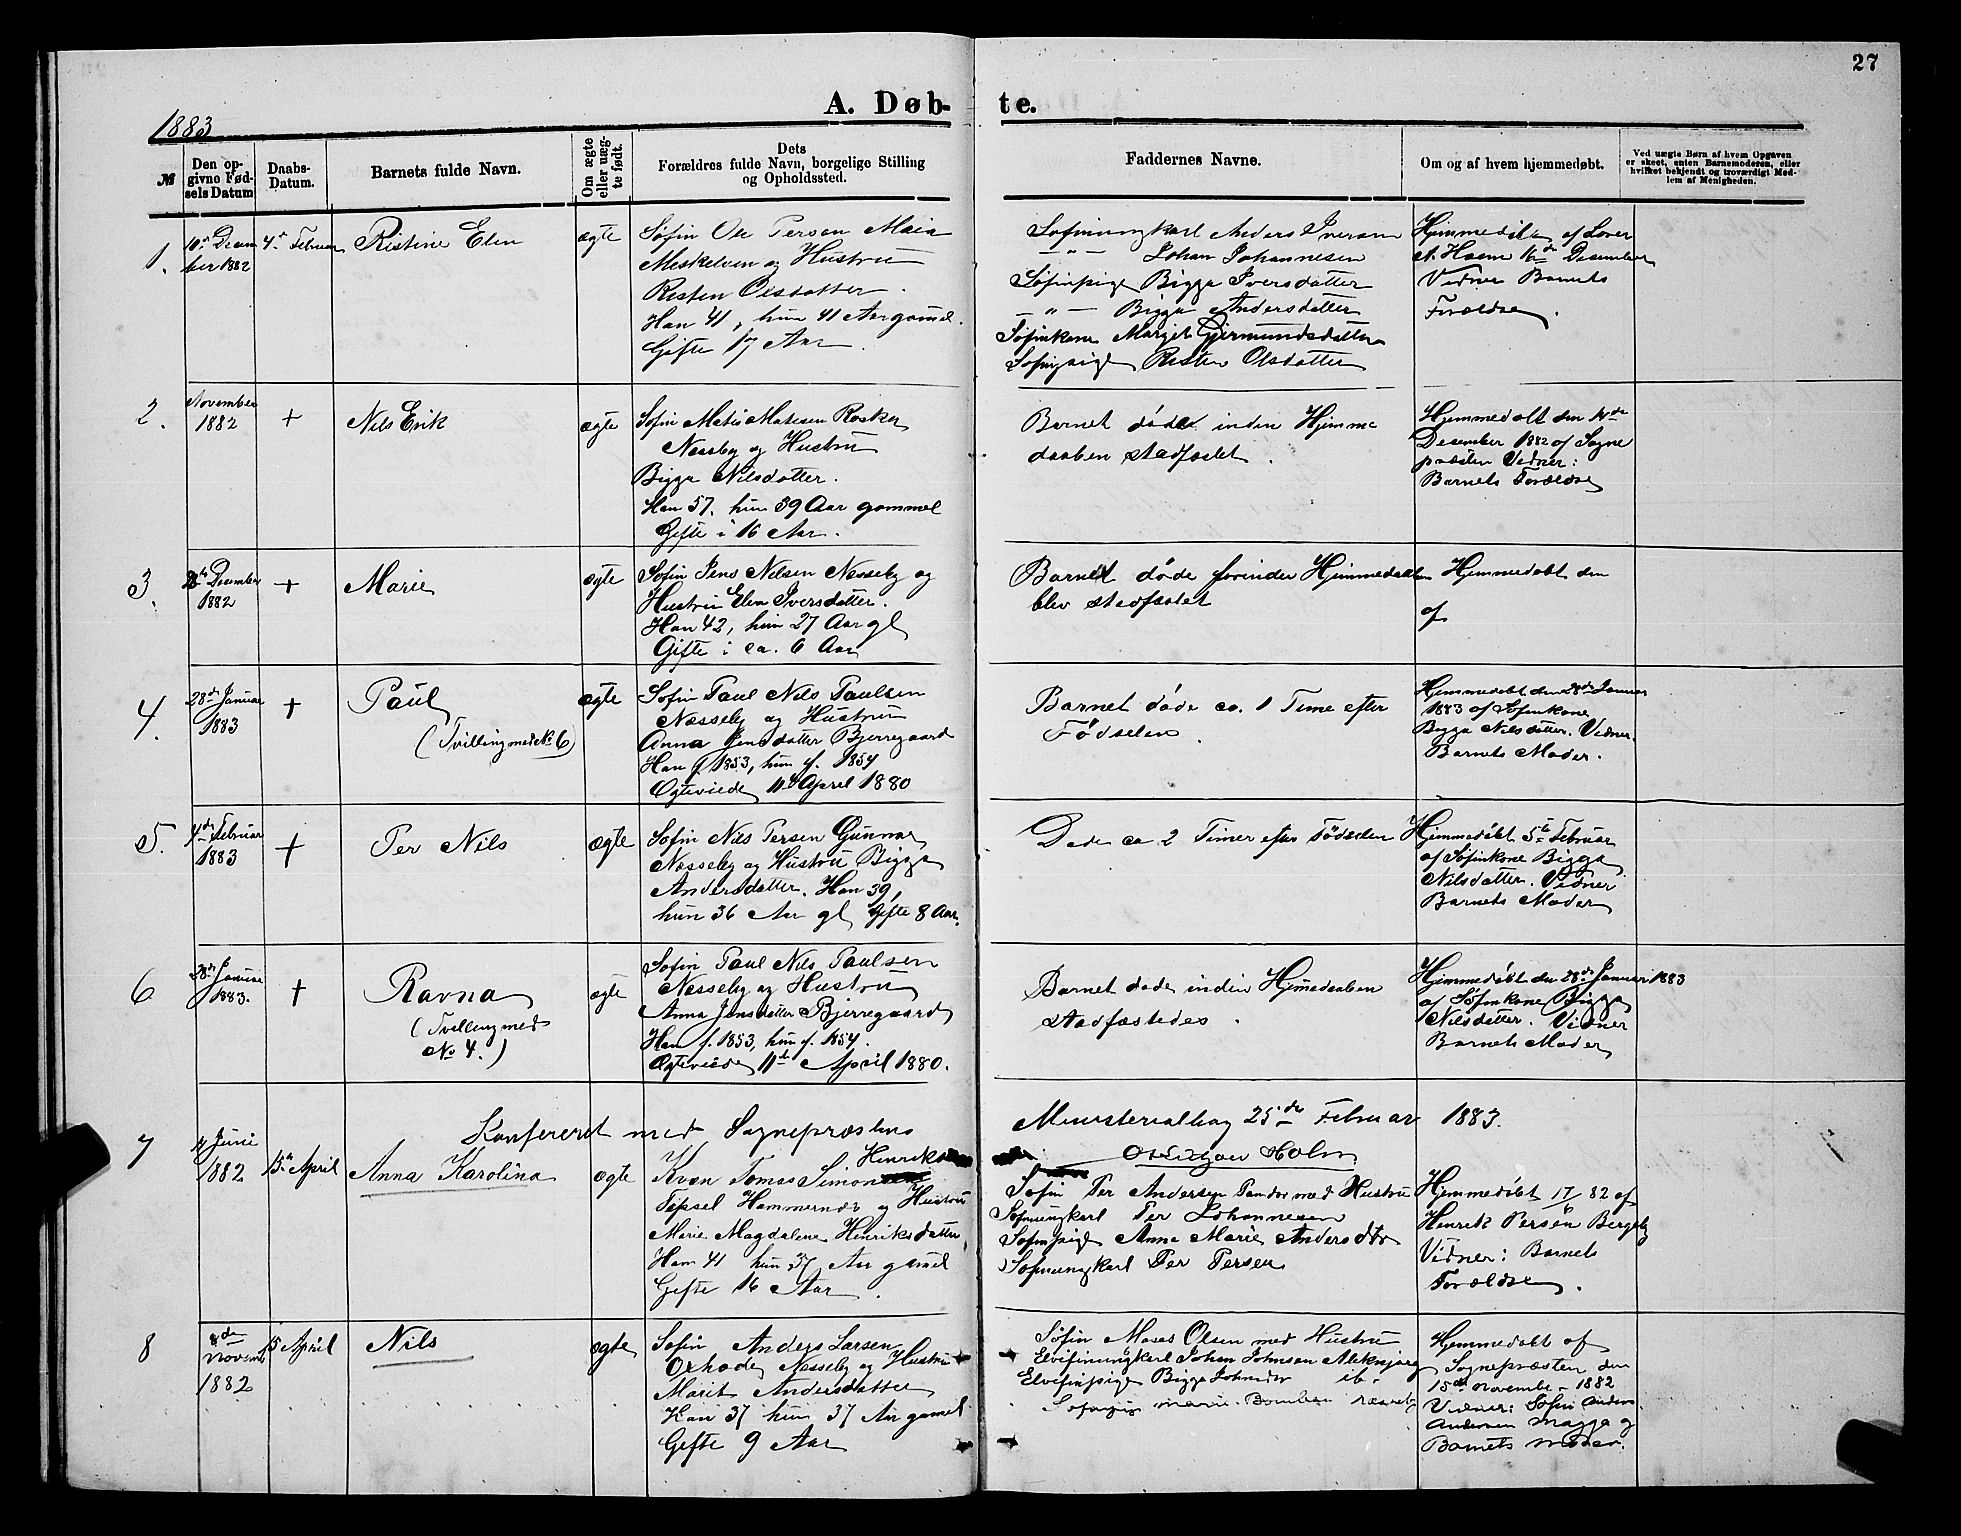 27
A. Døbte.
1883
№
Den opgivne Fødsels Datum
Daabs-Datum.
Barnets fulde Navn.
Om ægte eller uægte født.
Dets
Forældres fulde Navn, borgelige Stilling
og Opholdssted.
Faddernes Navne.
Om og af hvem hjemmedøbt.
Ved uægte Børn af hvem Opgaven
er skeet, enten Barnemoderen, eller
hvilket bekjendt og troværdigt Medlem af Menigheden.
1.
10de Decem
ber 1882
4de Februar
Ristine Elen
ægte
Søfin Ole Persen Maia
Meskelven og Hustru
Risten Olsdatter.
Han 41, hun 41 Aar gamel.
Gifte 17 Aar.
Søfinungkarl Anders Iversen
— " — Johan Johannesen
Søfinpige Bigga Iversdatter
— " — Bigga Andersdatter
Søfinkone Marget Gjermundsdatter
Søfinpige Risten Olsdatter
Hjemmedøbt af Lærer
A. Hoem 16de Desember
Vidner Barnets
Forældre.
2.
November
1882
+
Nils Erik
ægte
Søfin Matis Matisen Roska
Nesseby og Hustru
Bigga Nilsdatter.
Han 57, hun 39 Aar gammel
Gifte i 16 Aar.
Barnet døde inden Hjemme
daaben stadfæstet.
Hjemmedøbt den 14de
Desember 1882 af Sogne
præsten Vidner:
Barnets Forældre
3.
Desember
1882
+
Marie
ægte
Søfin Jens Nilsen Nesseby og
Hustru Elen Iversdatter.
Han 42, hun 27 Aar gl
Gifte i ca. 6 Aar
Barnet døde forinden Hjemmedaaben
blev stadfæstet
Hjemmedøbt den
af
4.
28de Januar
1883
+
Paul
(Tvilling med No 6)
ægte
Søfin Paul Nils Paulsen
Nesseby og Hustru
Anna Jensdatter Bjerregaard
Han f. 1853, hun f. 1854
Ægteviede 11te April 1880
Barnet døde ca. 1 Time efter
Fødselen.
Hjemmedøbt den 28de Januar
1883 af Søfinkone
Bigga Nilsdatter. Vidner.
Barnets Moder.
5.
4de Februar
1883
+
Per Nils
ægte
Søfin Nils Persen Gunnar
Nesseby og Hustru Bigga
Andersdatter. Han 39,
hun 36 Aar gl Gifte 8 Aar.
Døde ca 2 Timer efter Fødselen
Hjemmedøbt 5te Februar
af Søfinkone Bigga
Nilsdatter. Vidner
Barnets Moder
6
28de Januar
1883.
+
Ravna
(Tvilling med
No 4.)
ægte
Søfin Paul Nils Paulsen
Nesseby og Hustru
Anna Jensdatter Bjerregaard
Han f. 1853, hun f. 1854.
Ægteviede 11te April 1880.
Barnet døde inden Hjemmedaaben
stadfæstedes.
Hjemmedøbt den 28de Januar 1883
af Søfinkone Bigga
Nilsdatter. Vidner
Barnets Moder
Konfereret med Sognepræstens Ministerialbog 25de Februar 1883.
Holm
7
Juni
1882
15de April
Anna Karolina
ægte
Henriks
Kvæn Tomas Simon
Tipsel Hammernæs og Hustru
Marie Magdalene Henriksdatter
Han 41 hun 37 Aar gamel
Gifte 16 Aar.
Søfin Per Andersen Pandor med Hustru
Søfinungkarl Per Johannesen
Søfinpige Anna Marie Andersdtr
Søfinungkarl Per Persen
Hjemmedøbt 17/6 82 af
Henrik Persen Bergeby
Vidner: Barnets
Forældre.
8
8de
Novemb
1882
15 April
Nils
ægte
Søfin Anders Larsen
Nesseby og Hustru
Marit Andersdatter
Han 37 hun 37 Aar gamel
Gifte 9 Aar
Søfin Moses Olsen med Hustru
Elvefinungkarl Johan Johnsen
Elvefinpige Bigga Johnsdtr ib.
Søfinpige Marie
Hjemmedøbt af
Sognepræsten den
15de November 1882
Vidner: Søfin Anders
Andersen Magga og
Barnets Moder.